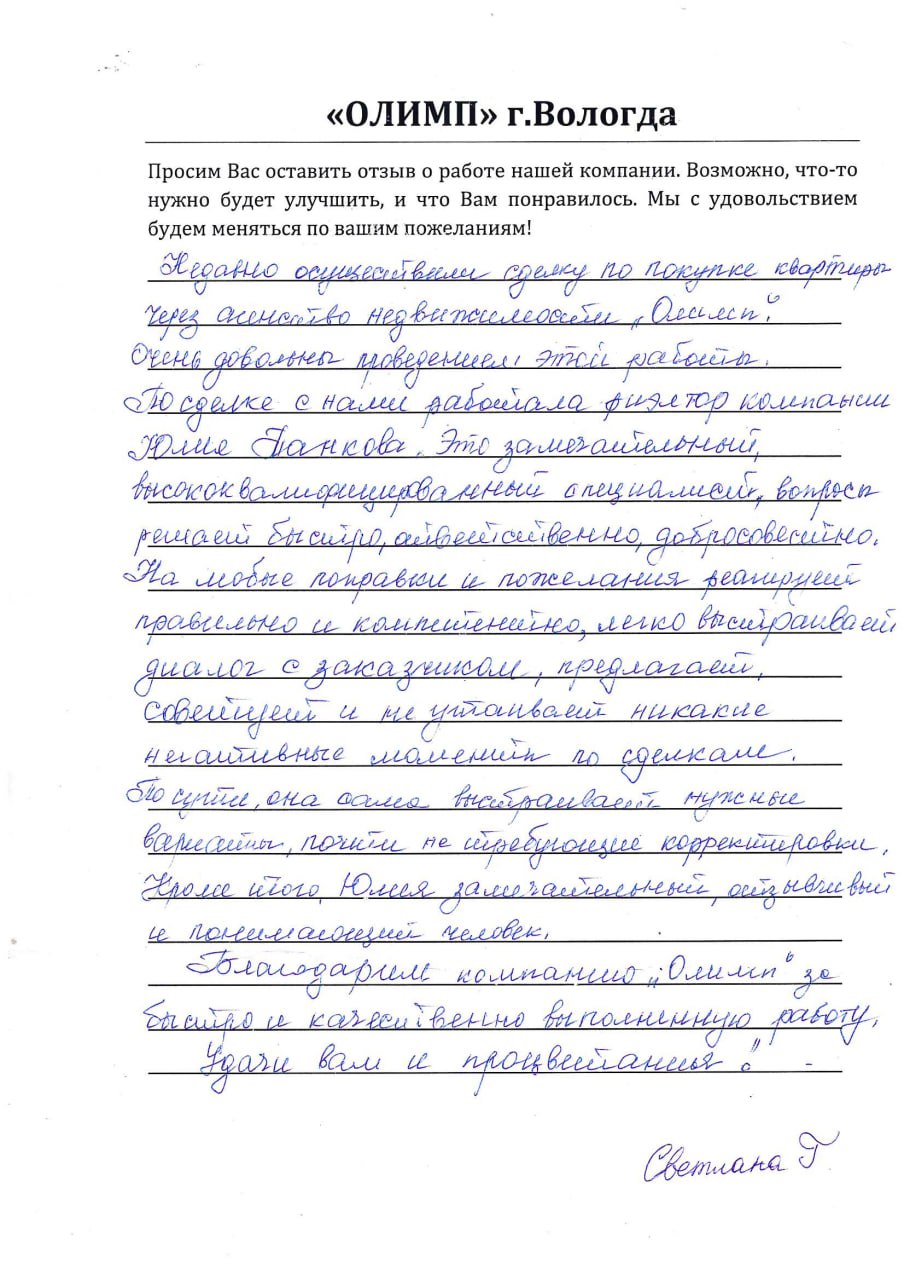 «ОЛИМП» г.Вологда
Просим Вас оставить отзыв о работе нашей компании. Возможно, что-то
нужно будет улучшить, и что Вам понравилось. Мы с удовольствием
будем меняться по вашим пожеланиям!
Недавно осуществили сделку по покупке квартиры
через агенство недвижимости „Олимп“.
Очень довольны проведением этой работы.
По сделке с нами работала риэлтор компании
Юлия Панкова. Это замечательный,
высококвалифицированный специалист, вопросы
решает быстро, ответственно, добросовестно.
На любые поправки и пожелания реагирует
правильно и компетентно, легко выстраивает
диалог с заказчиком, предлагает,
советует и не утаивает никакие
негативные моменты по сделкам.
По сути, она сама выстраивает нужные
варианты, почти не требующие корректировки.
Кроме того, Юлия замечательный, отзывчивый
и понимающий человек.
Благодарим компанию „Олимп“ за
быстро и качественно выполненную работу.
Удачи вам и процветания!
Светлана Г.